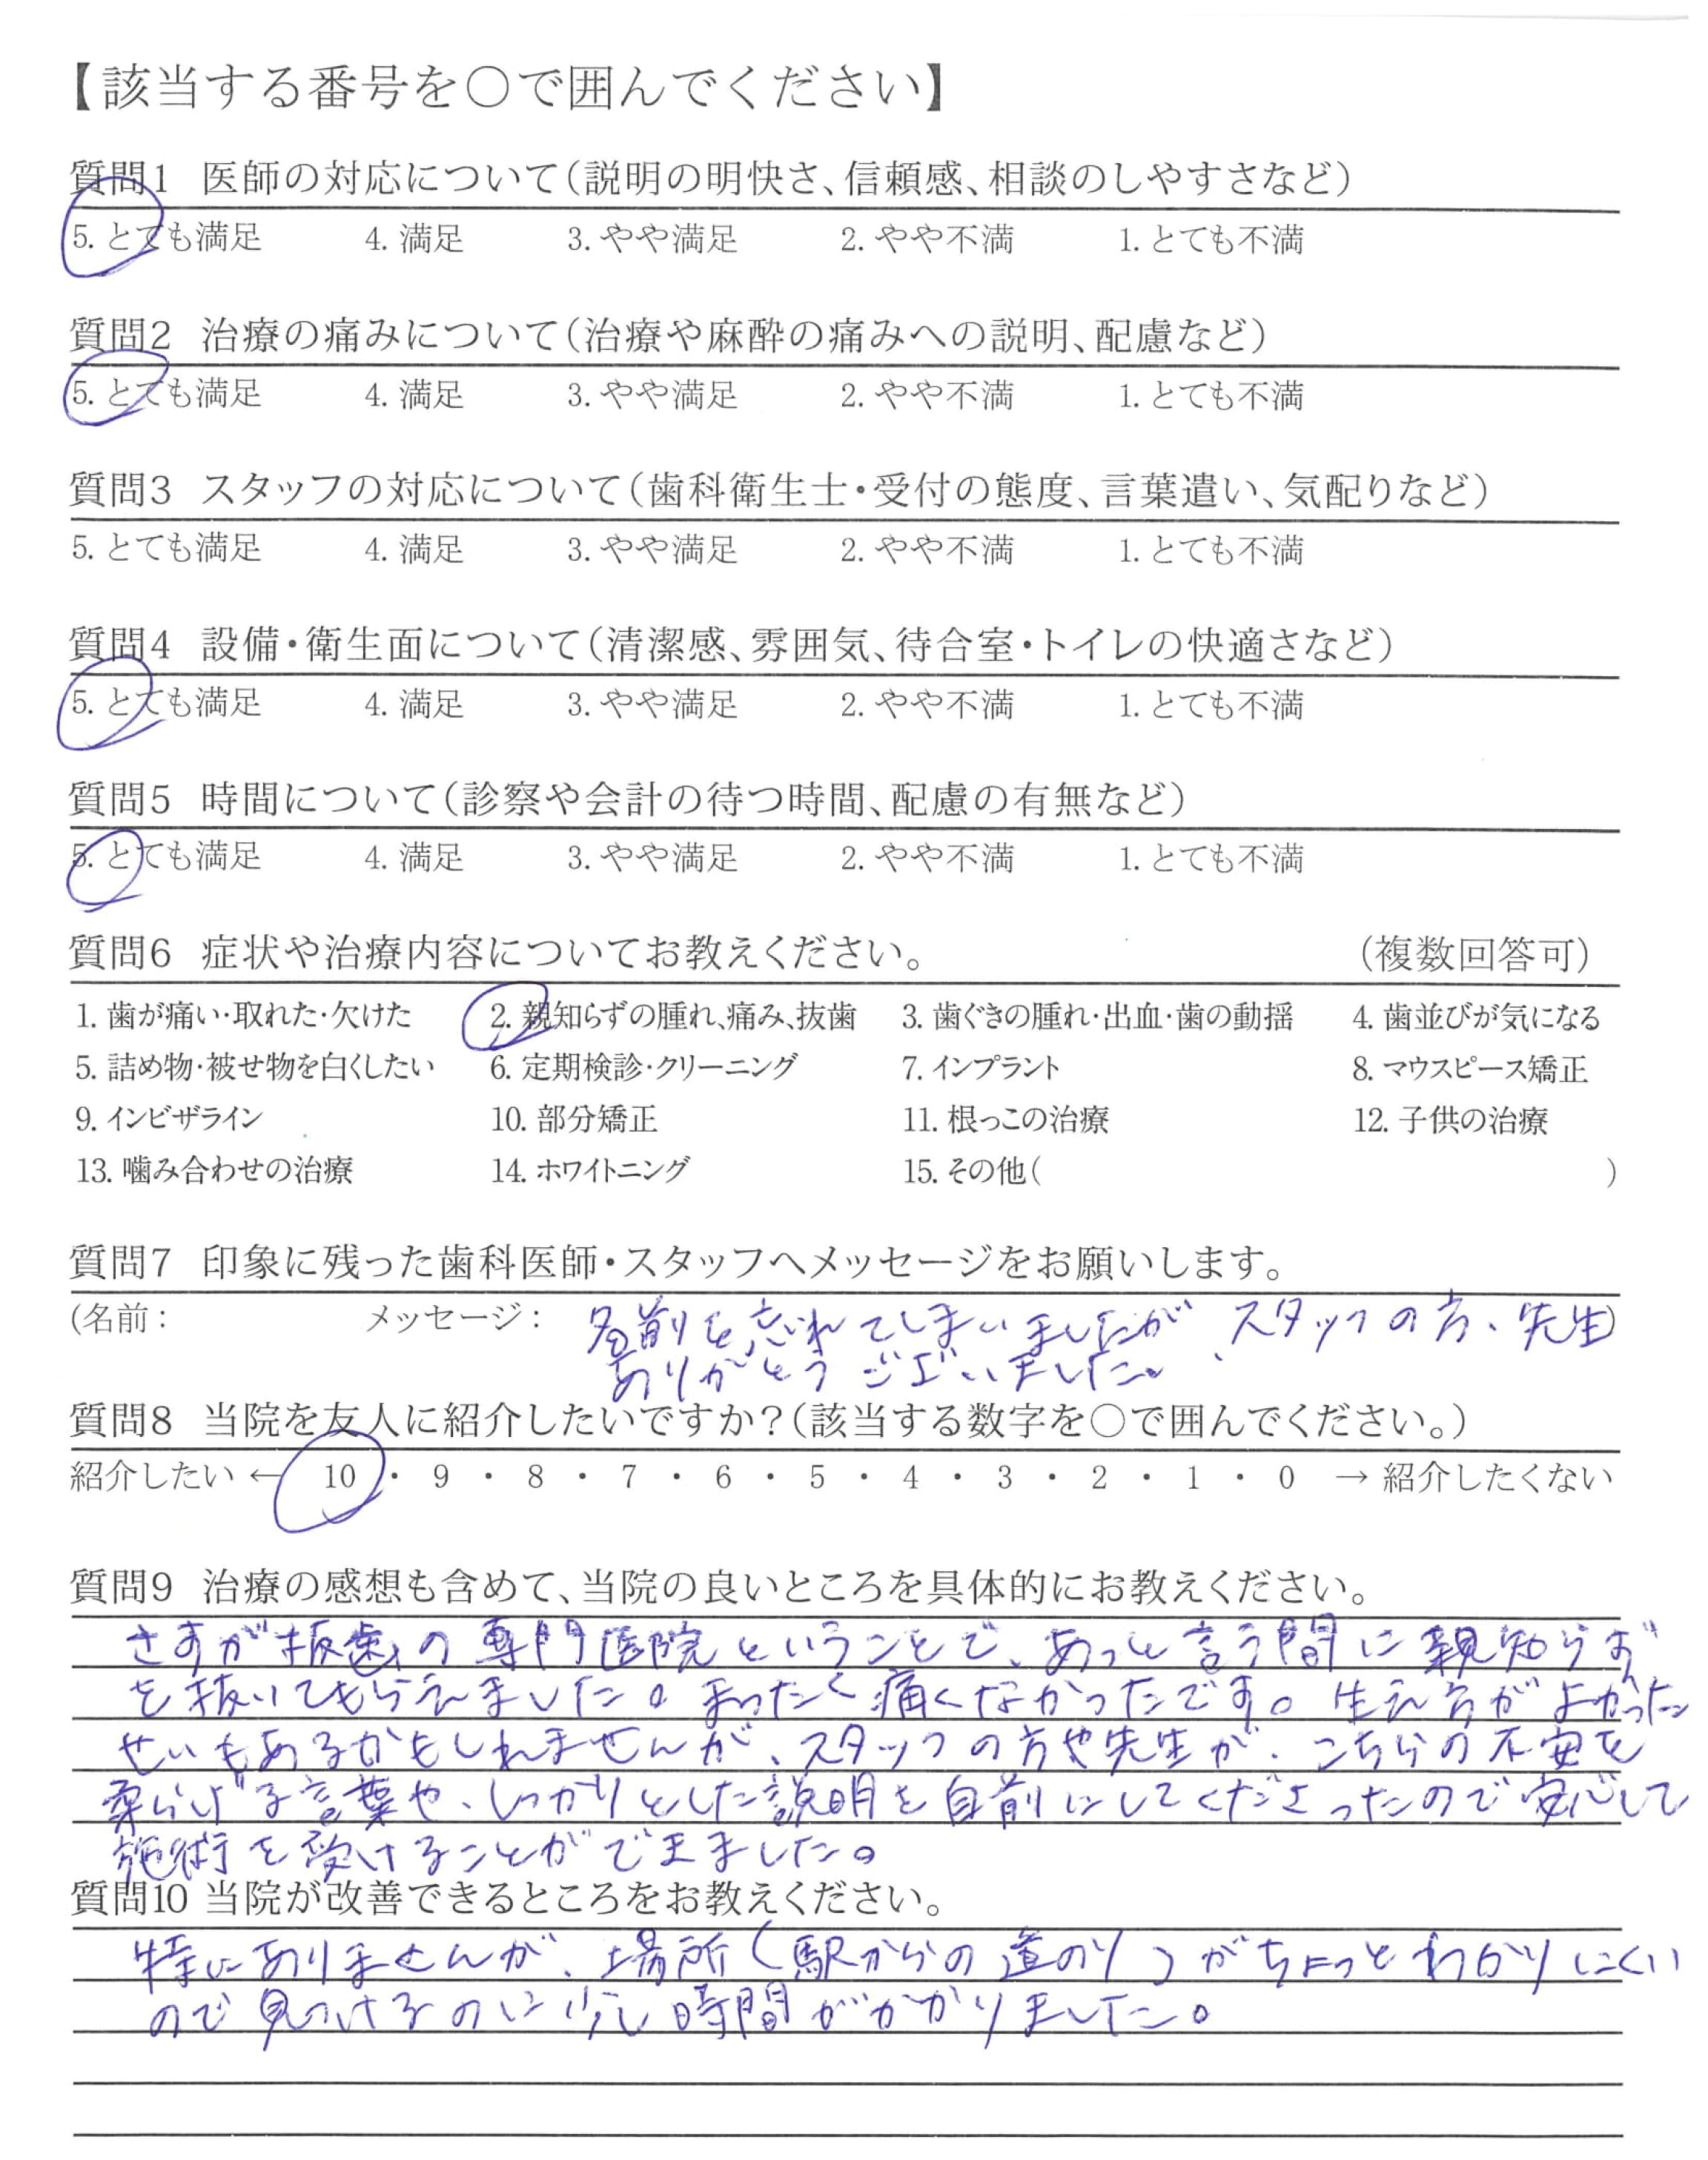 【該当する番号を〇で囲んでください】
質問1 医師の対応について(説明の明快さ、信頼感、相談のしやすさなど)
5. とても満足 4. 満足 3. やや満足 2. やや不満 1. とても不満
質問2 治療の痛みについて(治療や麻酔の痛みへの説明、配慮など)
5. とても満足 4. 満足 3. やや満足 2. やや不満 1. とても不満
質問3 スタッフの対応について(歯科衛生士・受付の態度、言葉遣い、気配りなど)
5. とても満足 4. 満足 3. やや満足 2. やや不満 1. とても不満
質問4 設備・衛生面について(清潔感、雰囲気、待合室・トイレの快適さなど)
5. とても満足 4. 満足 3. やや満足 2. やや不満 1. とても不満
質問5 時間について(診察や会計の待つ時間、配慮の有無など)
5. とても満足 4. 満足 3. やや満足 2. やや不満 1. とても不満
質問6 症状や治療内容についてお教えください。 (複数回答可)
1. 歯が痛い・取れた・欠けた 2. 親知らずの腫れ、痛み、抜歯 3. 歯ぐきの腫れ・出血・歯の動揺 4. 歯並びが気になる
5. 詰め物・被せ物を白くしたい 6. 定期検診・クリーニング 7. インプラント 8. マウスピース矯正
9. インビザライン 10. 部分矯正 11. 根っこの治療 12. 子供の治療
13. 噛み合わせの治療 14. ホワイトニング 15. その他( )
質問7 印象に残った歯科医師・スタッフへメッセージをお願いします。
(名前: メッセージ: 名前を忘れてしまいましたが、スタッフの方、先生)
ありがとうございました。
質問8 当院を友人に紹介したいですか?(該当する数字を〇で囲んでください。)
紹介したい ← 10 ・ 9 ・ 8 ・ 7 ・ 6 ・ 5 ・ 4 ・ 3 ・ 2 ・ 1 ・ 0 → 紹介したくない
質問9 治療の感想も含めて、当院の良いところを具体的にお教えください。
さすが抜歯の専門医院ということで、あっと言う間に親知らず
を抜いてもらえました。まったく痛くなかったです。生え方がよかった
せいもあるかもしれませんが、スタッフの方や先生が、こちらの不安を
柔らげる言葉や、しっかりとした説明を自前にしてくださったので安心して
施術を受けることができました。
質問10 当院が改善できるところをお教えください。
特にありませんが、場所(駅からの道のり)がちょっとわかりにくい
ので見つけるのに少し時間がかかりました。